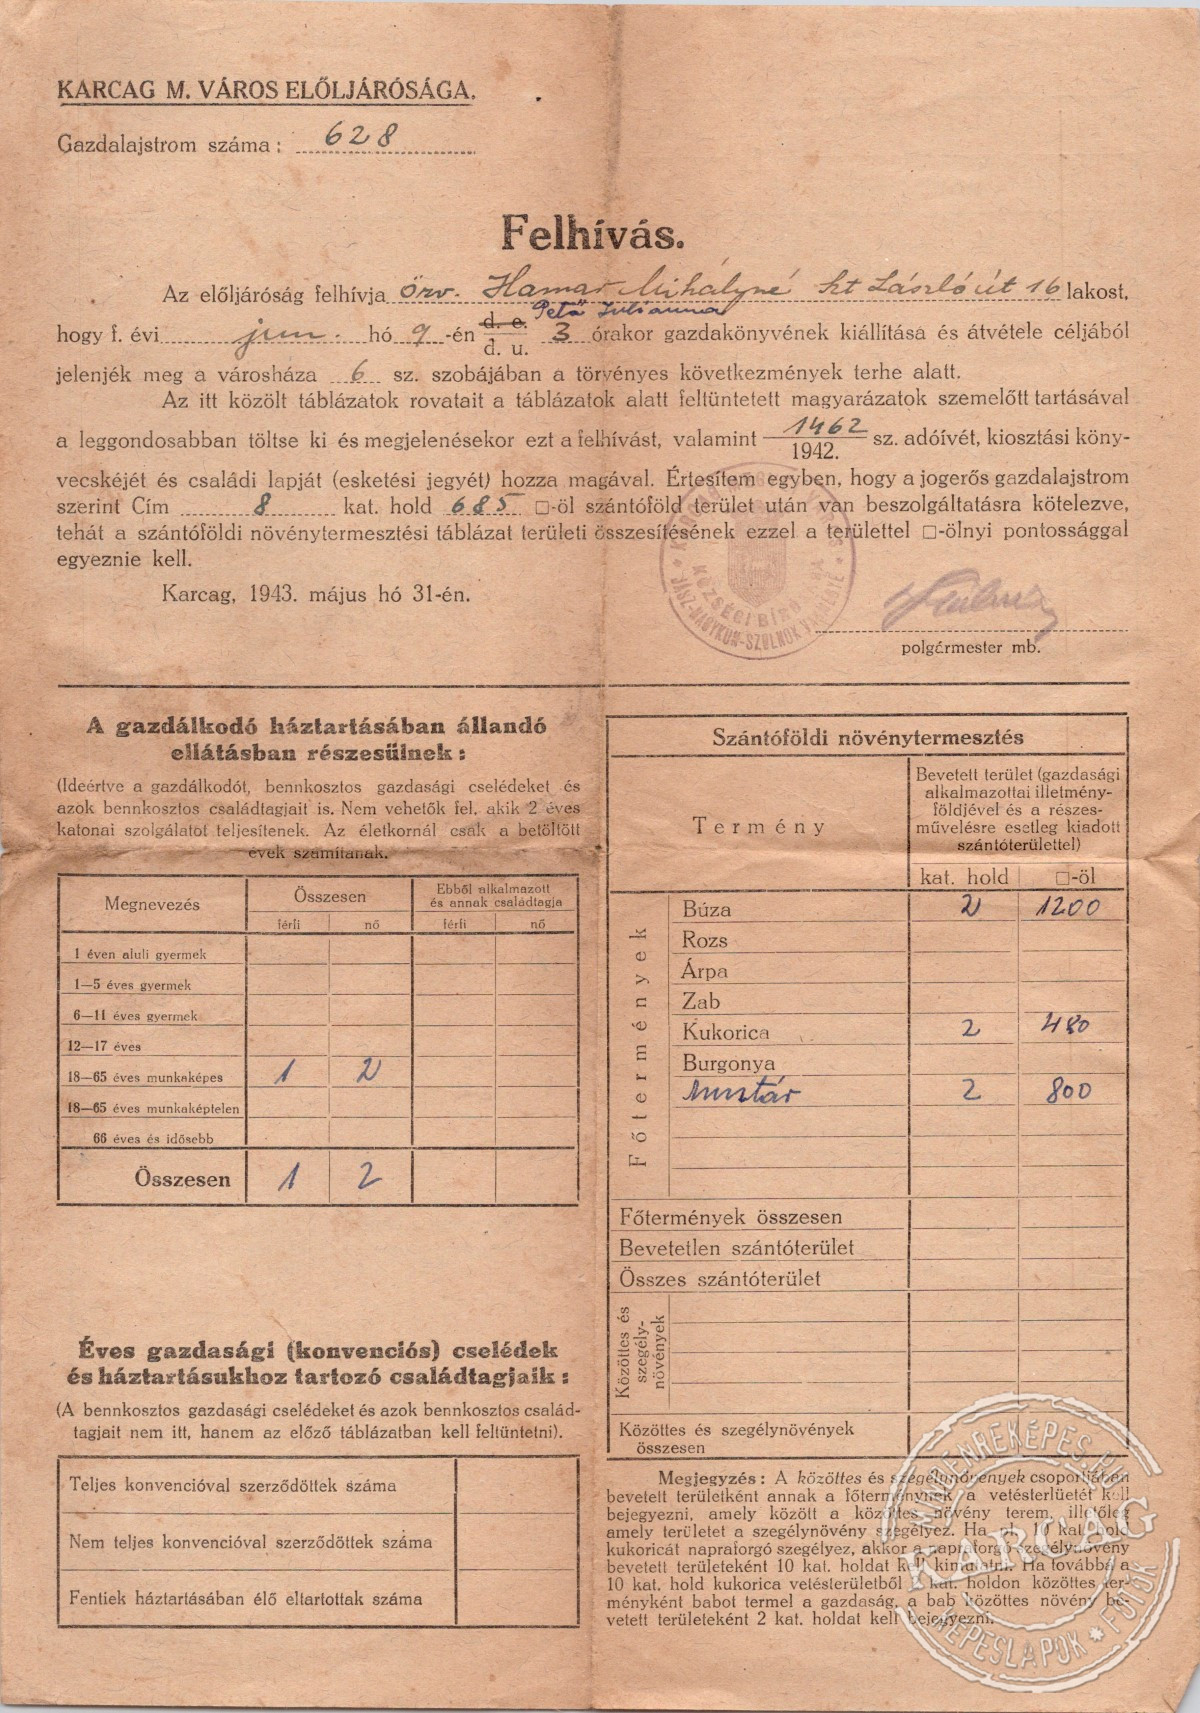 KARCAG M. VÁROS ELŐLJÁRÓSÁGA.
Gazdalajstrom száma: 628
Felhívás.
Az előljáróság felhívja özv. Hamar Mihályné Szt László út 16 lakost,
Pető Julianna
hogy f. évi jun. hó 9-én d. e. d. u. 3 órakor gazdakönyvének kiállítása és átvétele céljából
jelenjék meg a városháza 6 sz. szobájában a törvényes következmények terhe alatt.
Az itt közölt táblázatok rovatait a táblázatok alatt feltüntetett magyarázatok szemelőtt tartásával
a leggondosabban töltse ki és megjelenésekor ezt a felhívást, valamint 1462/1942. sz. adóívét, kiosztási köny-
vecskéjét és családi lapját (esketési jegyét) hozza magával. Értesítem egyben, hogy a jogerős gazdalajstrom
szerint Cím 8 kat. hold 685 □-öl szántóföld terület után van beszolgáltatásra kötelezve,
tehát a szántóföldi növénytermesztési táblázat területi összesítésének ezzel a területtel □-ölnyi pontossággal
egyeznie kell.
Karcag, 1943. május hó 31-én.
KÖZSÉGI BÍRÓ
JÁSZ-NAGYKUN-SZOLNOK VÁRMEGYE
polgármester mb.
A gazdálkodó háztartásában állandó
ellátásban részesülnek:
(Ideértve a gazdálkodót, bennkosztos gazdasági cselédeket és
azok bennkosztos családtagjait is. Nem vehetők fel, akik 2 éves
katonai szolgálatot teljesítenek. Az életkornál csak a betöltött
évek számítanak.
Megnevezés Összesen Ebből alkalmazott és annak családtagja
férfi nő férfi nő
1 éven aluli gyermek
1—5 éves gyermek
6—11 éves gyermek
12—17 éves
18—65 éves munkaképes 1 2
18—65 éves munkaképtelen
66 éves és idősebb
Összesen 1 2
Éves gazdasági (konvenciós) cselédek
és háztartásukhoz tartozó családtagjaik:
(A bennkosztos gazdasági cselédeket és azok bennkosztos család-
tagjait nem itt, hanem az előző táblázatban kell feltüntetni).
Teljes konvencióval szerződöttek száma
Nem teljes konvencióval szerződöttek száma
Fentiek háztartásában élő eltartottak száma
Szántóföldi növénytermesztés
Termény
Bevetett terület (gazdasági
alkalmazottai illetmény-
földjével és a részes-
művelésre esetleg kiadott
szántóterülettel)
kat. hold □-öl
Főtermények
Búza 2 1200
Rozs
Árpa
Zab
Kukorica 2 480
Burgonya
Mustár 2 800
Főtermények összesen
Bevetetlen szántóterület
Összes szántóterület
Közöttes és
szegély-
növények
Közöttes és szegélynövények
összesen
Megjegyzés: A közöttes és szegélynövények csoportjában
bevetett területként annak a főterménynek a vetésterlüetét kell
bejegyezni, amely között a közöttes növény terem, illetőleg
amely területet a szegélynövény szegélyez. Ha pl. 10 kat. hold
kukoricát napraforgó szegélyez, akkor a napraforgó szegélynövény
bevetett területeként 10 kat. holdat kell kimutatni. Ha továbbá a
10 kat. hold kukorica vetésterületből 2 kat. holdon közöttes ter-
ményként babot termel a gazdaság, a bab közöttes növény be-
vetett területeként 2 kat. holdat kell bejegyezni.
MINDENREKÉPES.HU
KARCAG
KÉPESLAPOK * FOTÓK